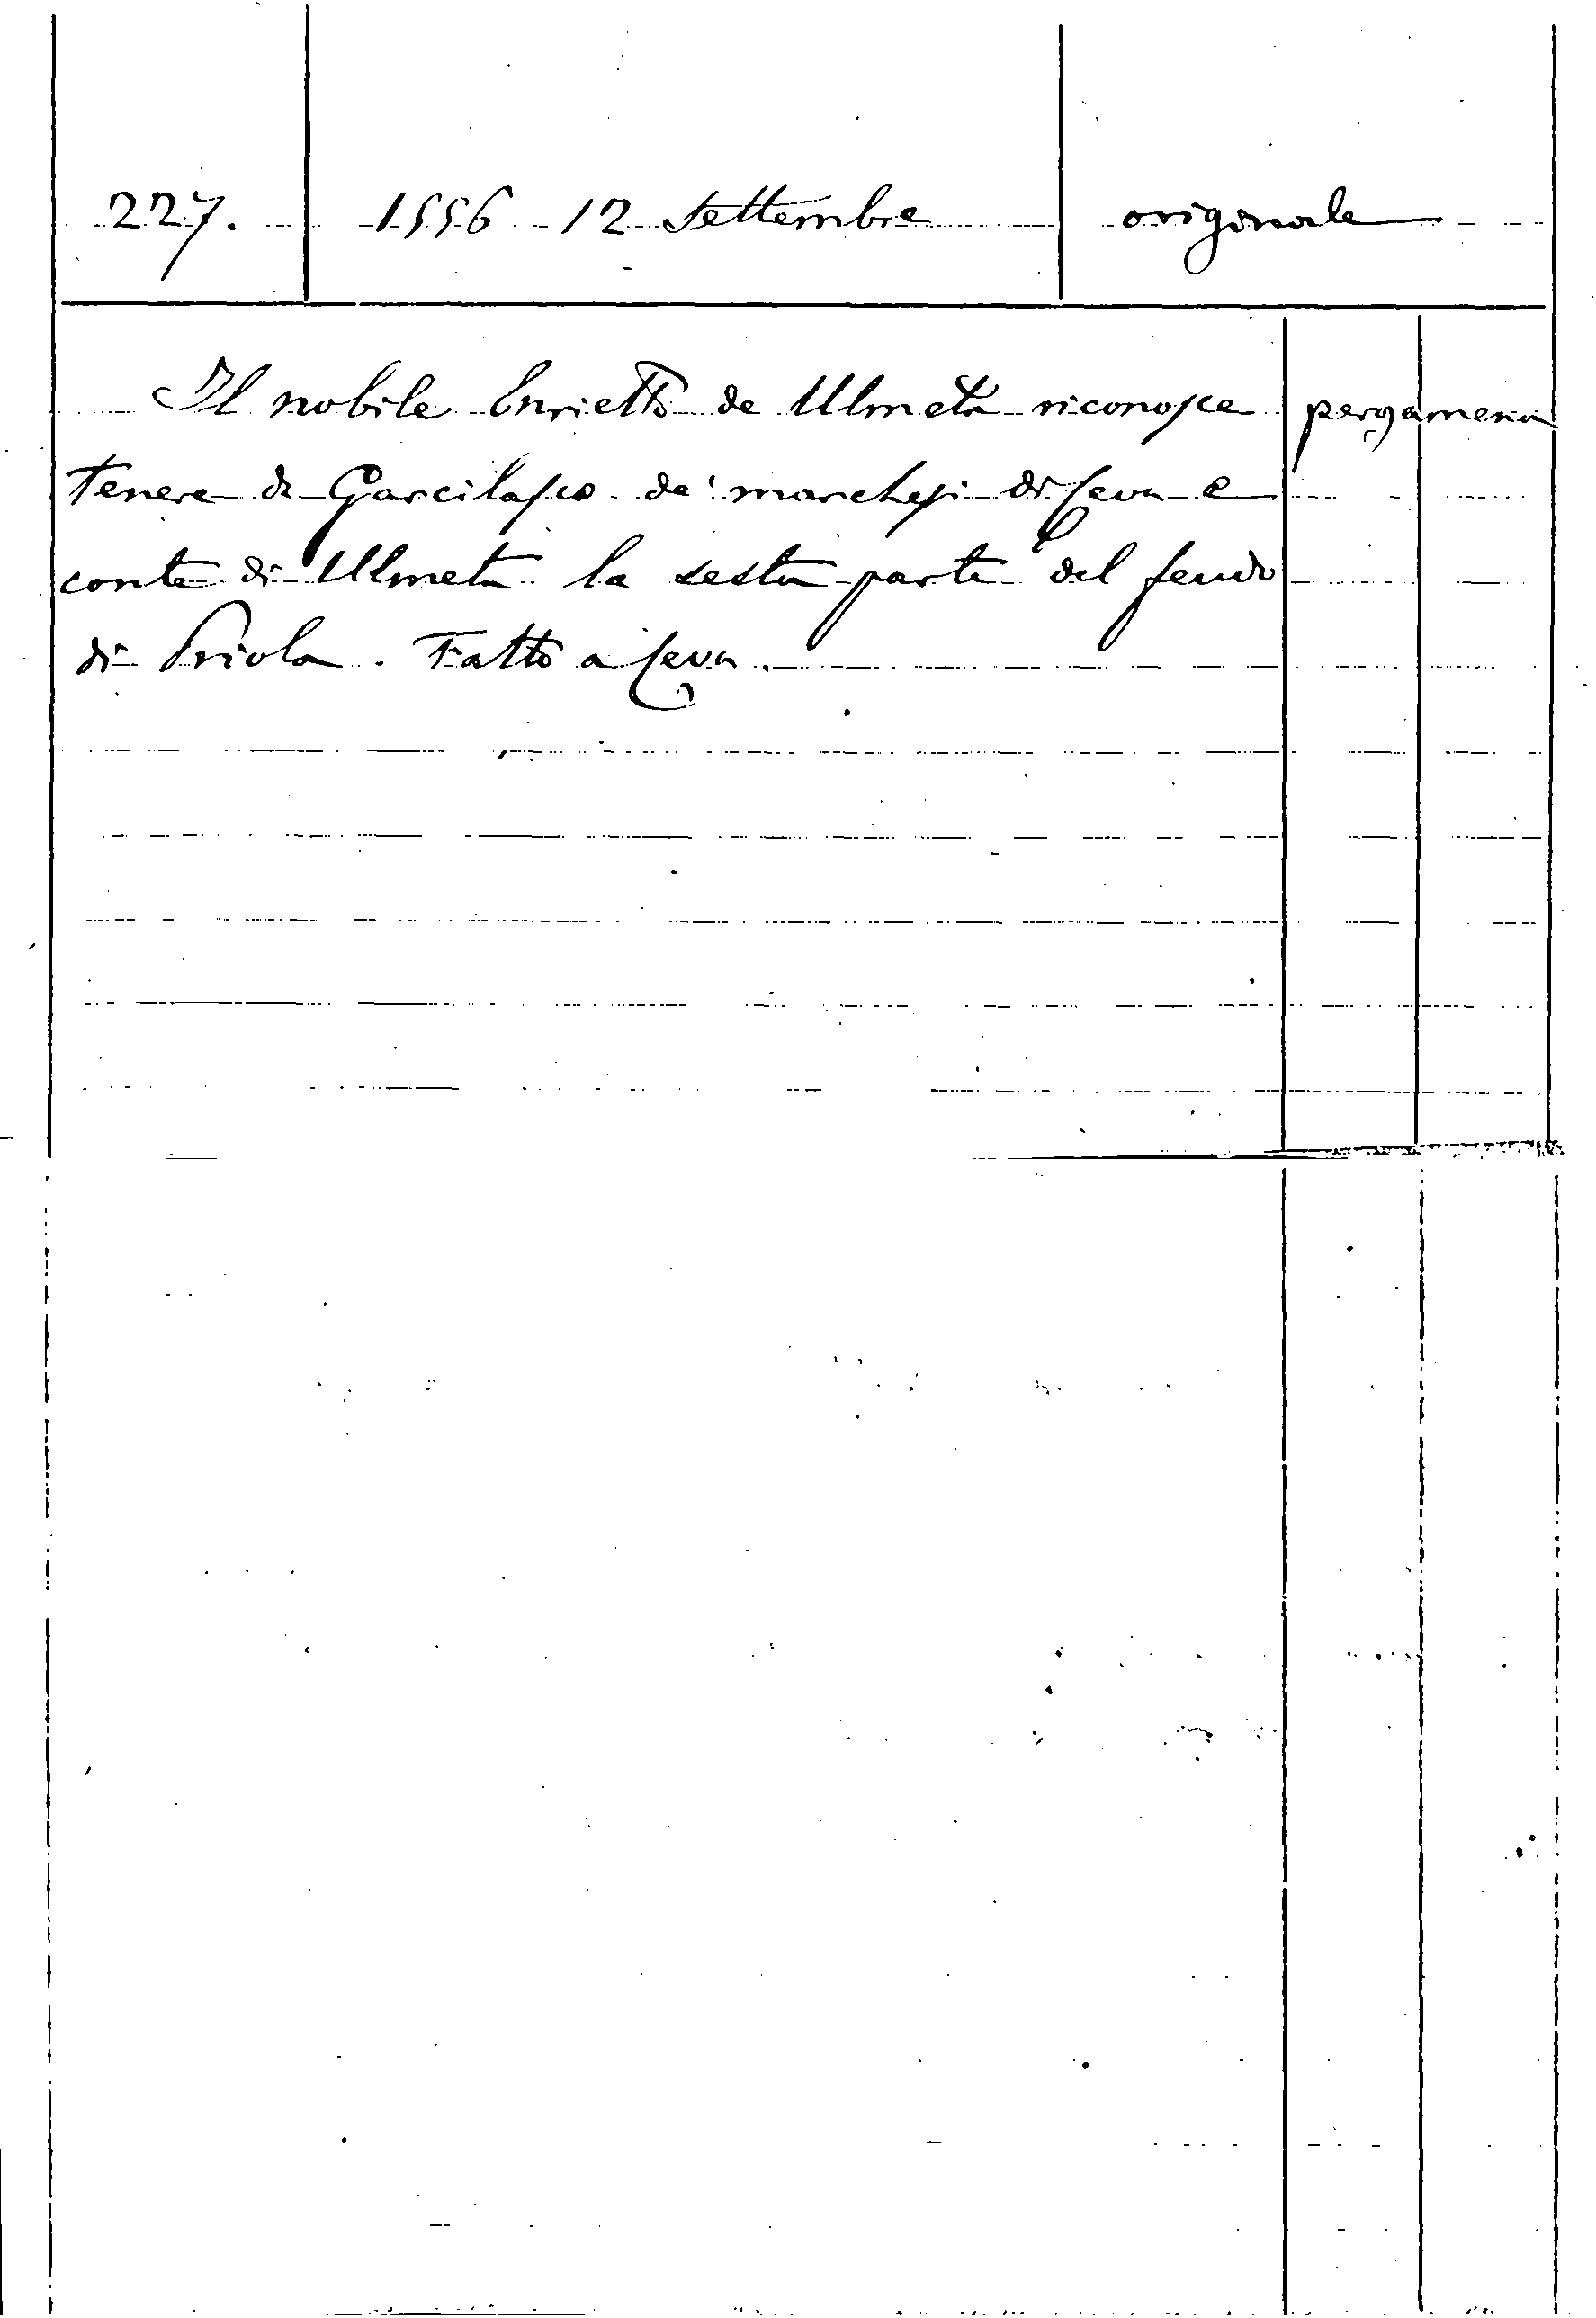 227. 1556 12 Settembre originale
Il nobile Enrietto de Ulmeta riconosce pergamena
tenere da Garcilasco de' marchesi di Ceva e
conte di Ulmeta la sesta parte del feudo
di Priola. Fatto a Ceva.